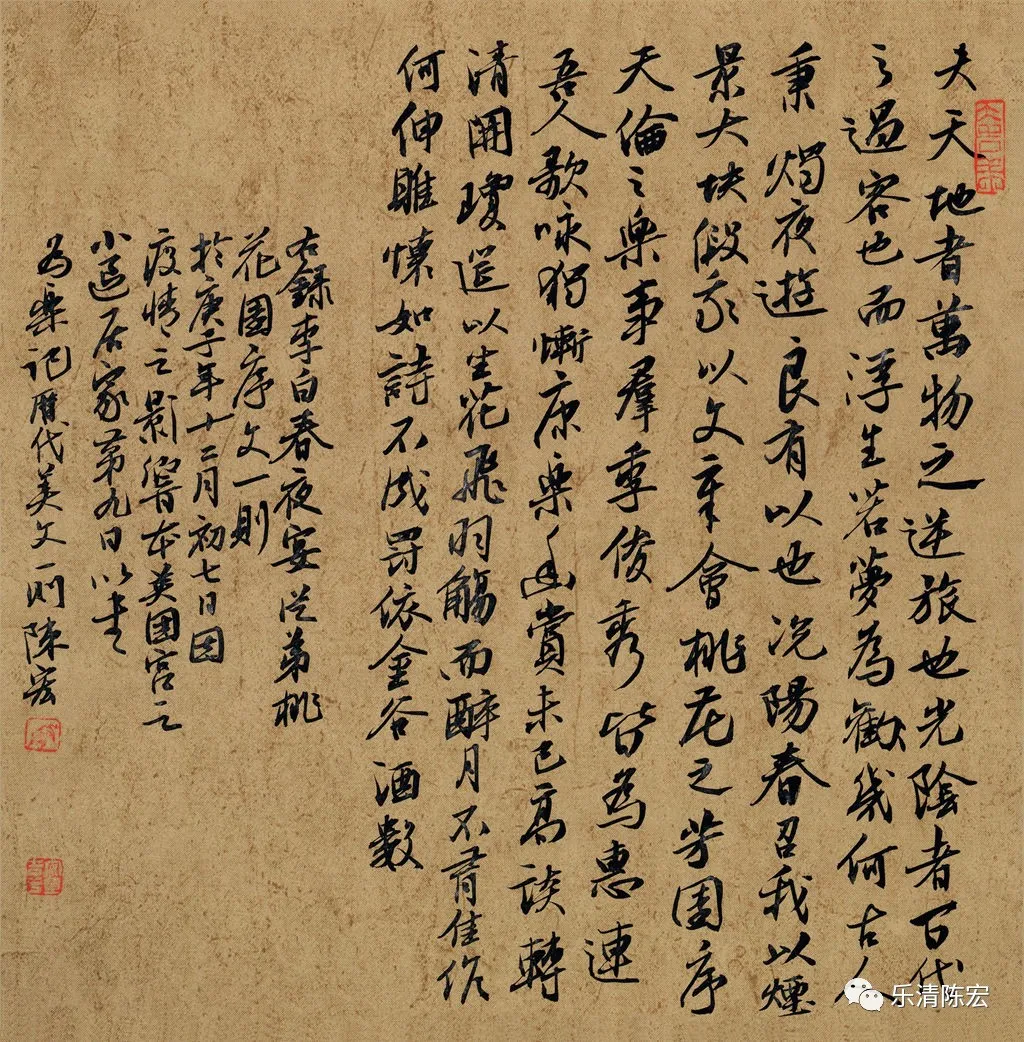 夫天地者萬物之逆旅也光陰者百代
之過客也而浮生若夢為歡幾何古人
秉燭夜遊良有以也况陽春召我以煙
景大块假我以文章會桃花之芳園序
天倫之樂事羣季俊秀皆為惠連
吾人歌咏獨慚康樂幽賞未已高談轉
清開瓊筵以坐花飛羽觴而醉月不有佳作
何伸雅懷如詩不成罰依金谷酒數
右録李白春夜宴從弟桃
花園序文一則
於庚子年十二月初七日因
疫情之影響本美国宫之
小區居家第九日以書
為樂記歷代美文一则陳宏
乐清陈宏